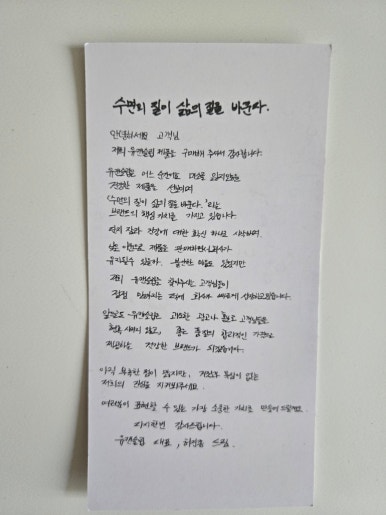 수면의 질이 삶의 질을 바꾼다.
안녕하세요 고객님
저희 유앤슬립 제품을 구매해 주셔서 감사합니다.
유앤슬립은 어느 순간에도 미소를 잃지않는
건강한 제품을 선보이며
"수면의 질이 삶의 질을 바꾼다."라는
브랜드의 핵심 가치를 가지고 있습니다.
품질과 건강에 대한 확신 하나로 시작하여,
낮은 이윤으로 제품을 판매하면서 회사가
유지될수 있을까. 불안한 마음도 있었지만
저희 유앤슬립을 찾아주신 고객님들이
점점 많아지는 덕에 회사가 빠르게 성장하고있습니다.
앞으로도 유앤슬립은 과도한 광고나 홍보로 고객님들을
현혹 시키지 않고, 좋은 품질의 합리적인 가격만
제공하는 건강한 브랜드가 되겠습니다.
아직 부족한 점이 많지만, 거짓과 욕심이 없는
저희의 진심을 지켜봐주세요.
여러분이 표현할 수 있는 가장 소중한 가치로 만들어 드릴게요.
다시한번 감사드립니다.
유앤슬립 대표, 드림.